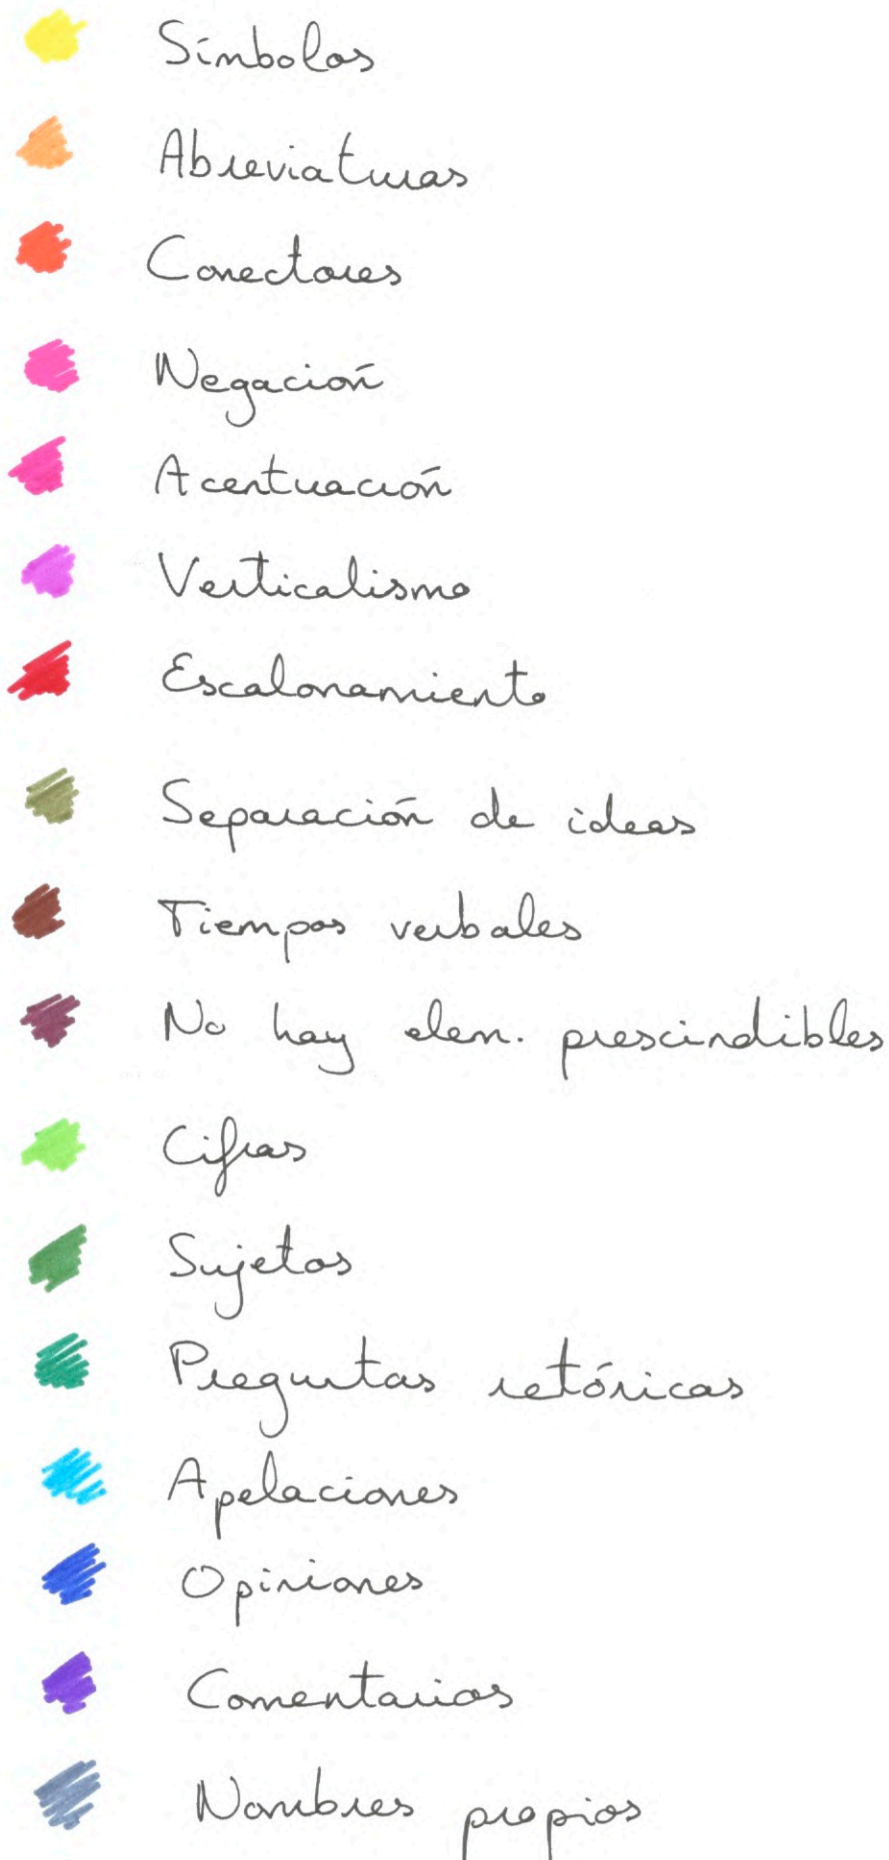 Símbolos
Abreviaturas
Conectores
Negación
Acentuación
Verticalismo
Escalonamiento
Separación de ideas
Tiempos verbales
No hay elem. prescindibles
Cifras
Sujetos
Preguntas retóricas
Apelaciones
Opiniones
Comentarios
Nombres propios